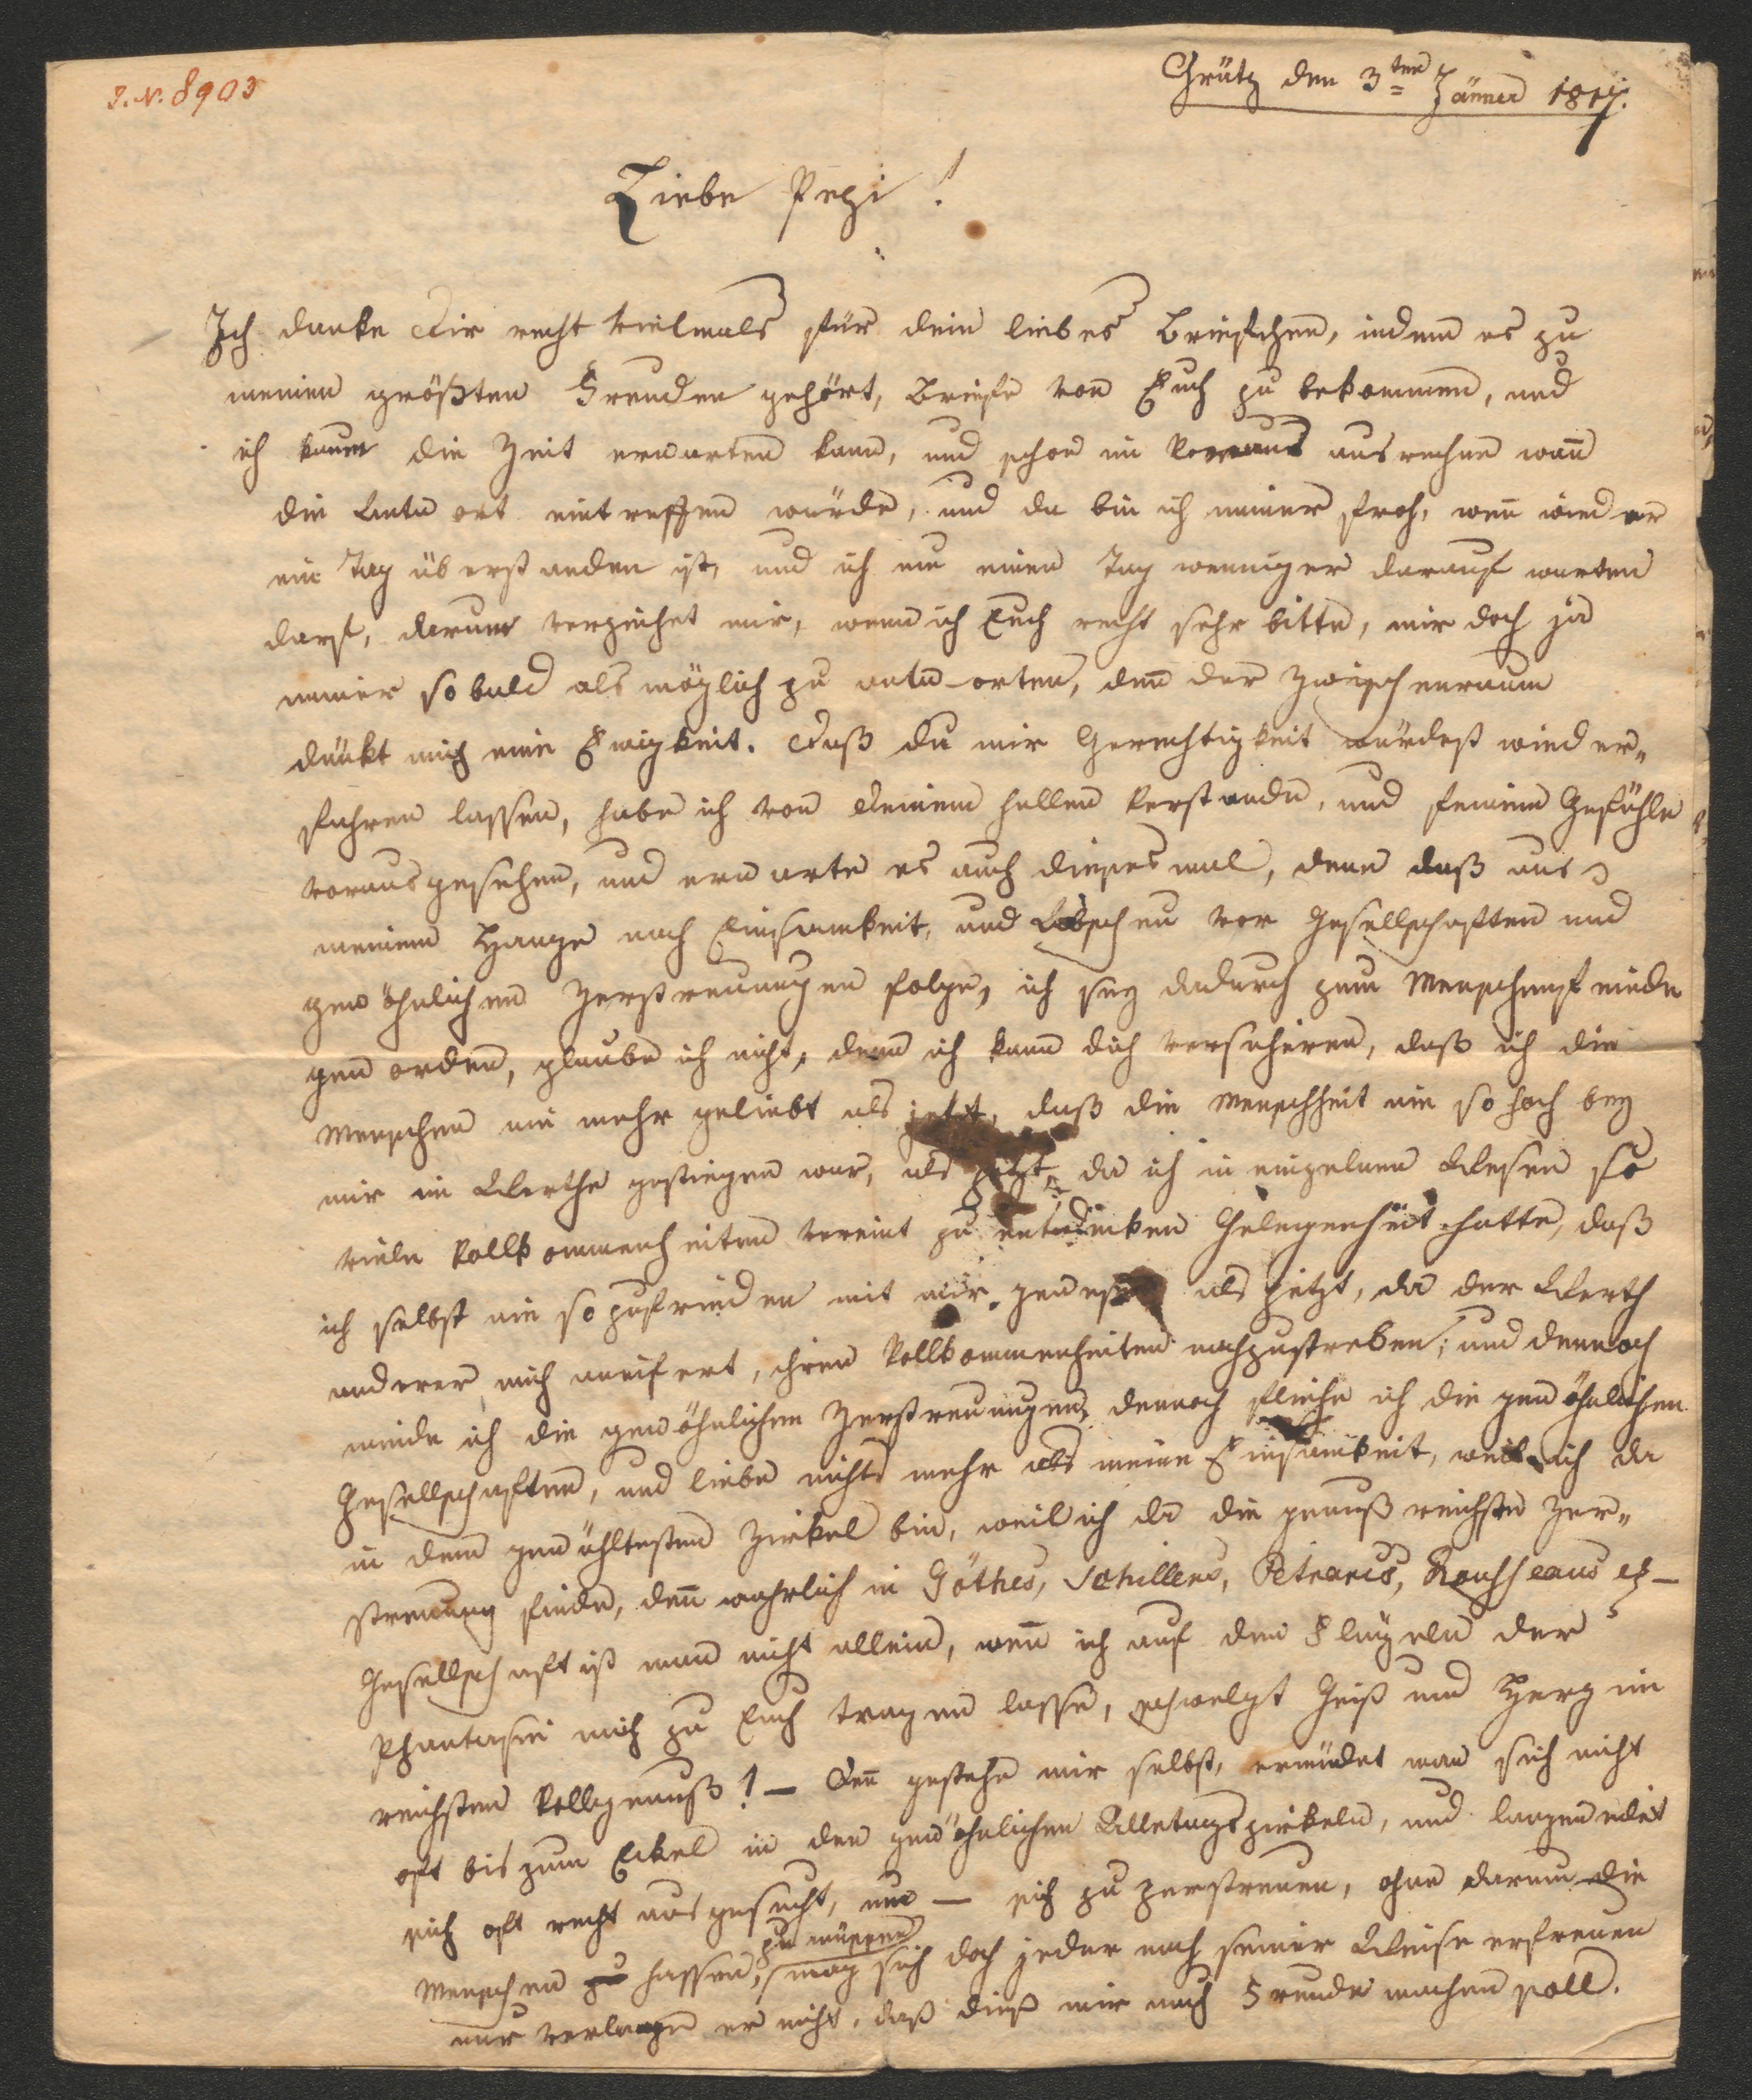 J. N. 8903
Grätz den 3ten Jänner 1817.
Liebe Pepi!
Ich danke Dir recht vielmals für dein liebes Briefchen, indem es zu
meinen größten Freuden gehört, Briefe von Euch zu bekommen, und
ich kaum die Zeit erwarten kann, und schon im Voraus ausrechne wañ
die Antwort eintreffen würde, und da bin ich immer froh, weñ wieder
ein Tag überstanden ist, und ich nur einen Tag weniger darauf warten
darf, darum verzeihet mir, wenn ich Euch recht sehr bitte, mir doch ja
immer so bald als möglich zu antworten, deñ der Zwischenraum
dünkt mich eine Ewigkeit. Daß du mir Gerechtigkeit würdest wieder„
fahren lassen, habe ich von Deinem hellen Verstande, und feinem Gefühle
vorausgesehen, und erwarte es auch diesesmal, denn daß aus
meinem Hange nach Einsamkeit, und Abscheu vor Gesellschaften und
gewöhnlichen Zerstreuungen folge, ich sey dadurch zum Menschenfeinde
geworden, glaube ich nicht, denn ich kann dich versichern, daß ich die
Menschen nie mehr geliebt als jetzt, daß die Menschheit nie so hoch bey
mir im Werthe gestiegen war, als jetzt, da ich in einzelnen Wesen so
viele Vollkommenheiten vereint zu entdecken Gelegenheit hatte, daß
ich selbst nie so zufrieden mit mir gewesen als jetzt, da der Werth
anderer mich aneifert, ihren Vollkommenheiten nachzustreben; und dennoch
meide ich die gewöhnlichen Zerstreuungen, dennoch fliehe ich die gewöhnlichen
Gesellschaften, und liebe nichts mehr als meine Einsamkeit, weil ich da
in dem gewähltesten Zirkel bin, weil ich da die genußreichste Zer„
streuung finde, deñ wahrlich in Göthes, Schillers, Petrarcs, Rousseaus etz—
Gesellschaft ist man nicht allein, weñ ich auf den Flügeln der
Phantasie mich zu Euch tragen lasse, schwelgt Geist und Herz im
reichsten Vollgenuß! — Deñ gestehe mir selbst, ermüdet man sich nicht
oft bis zum Eckel in den gewöhnlichen Alletagszirkeln, und langweilet
sich oft recht ausgesucht, um — sich zu zerstreuen, ohne darum die
Menschen zu hassen zu müssen, mag sich doch jeder nach seiner Weise erfreuen
nur verlange er nicht, daß dieß mir auch Freude machen soll.